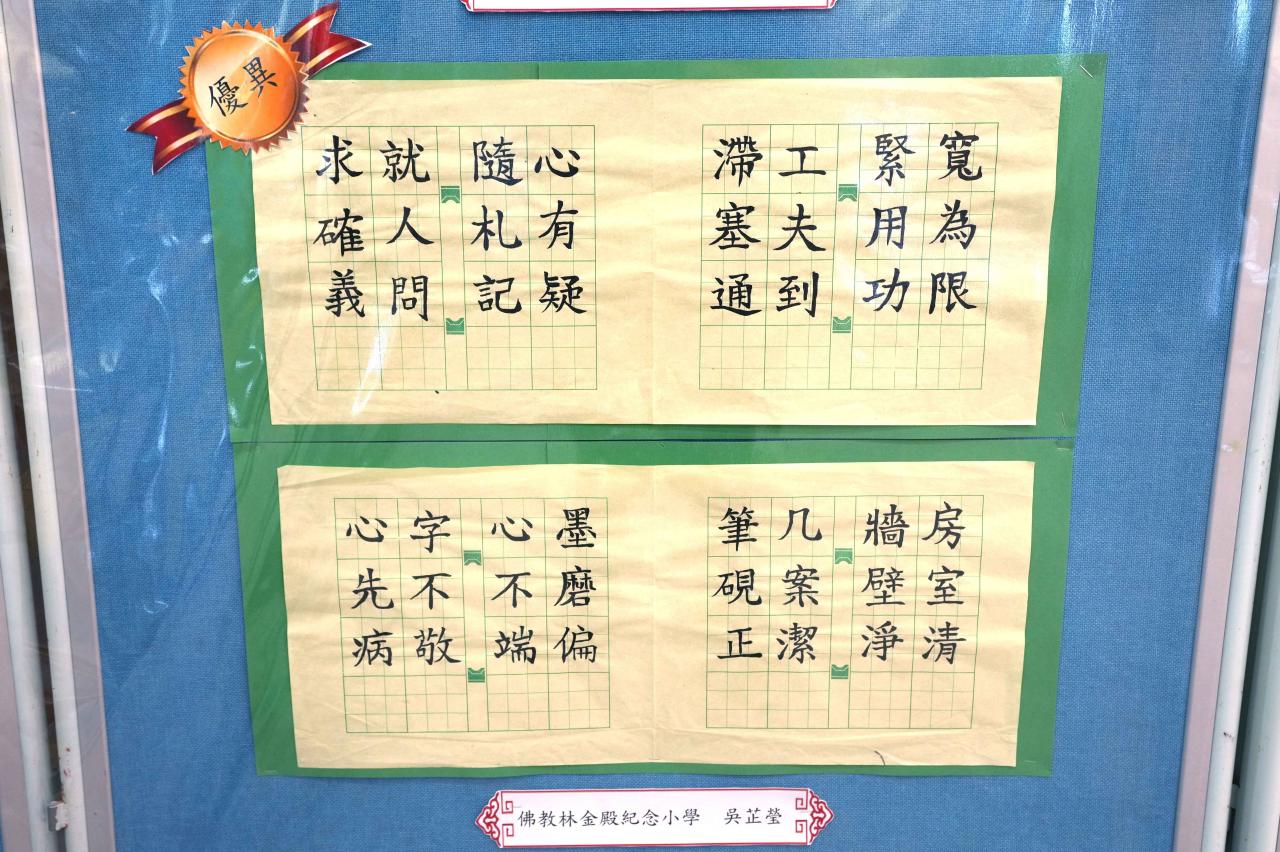 優異
寬為限
緊用功
工夫到
滯塞通
心有疑
隨札記
就人問
求確義
房室清
牆壁淨
几案潔
筆硯正
墨磨偏
心不端
字不敬
心先病
佛教林金殿紀念小學 吳芷瑩